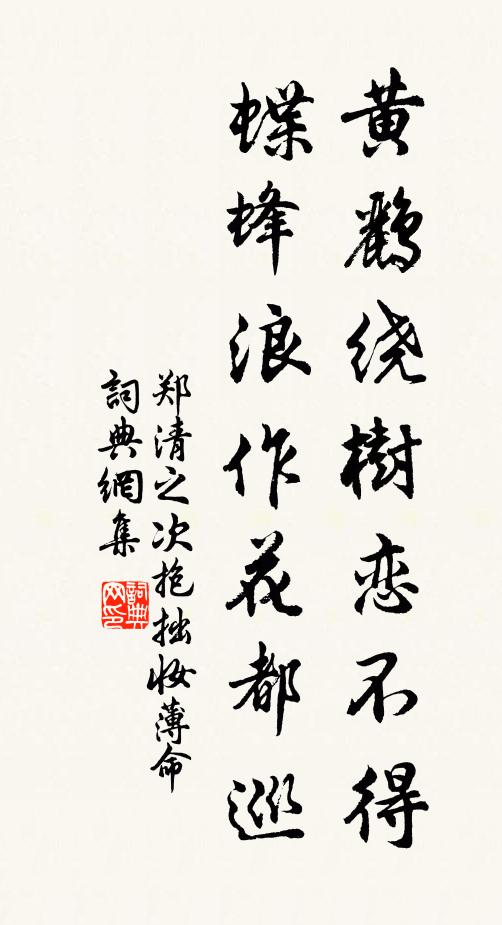 黄鸝绕樹恋不得
蝶蜂浪作花都巡
郑清之次抱拙妆薄命
詞典網集
詞典网印